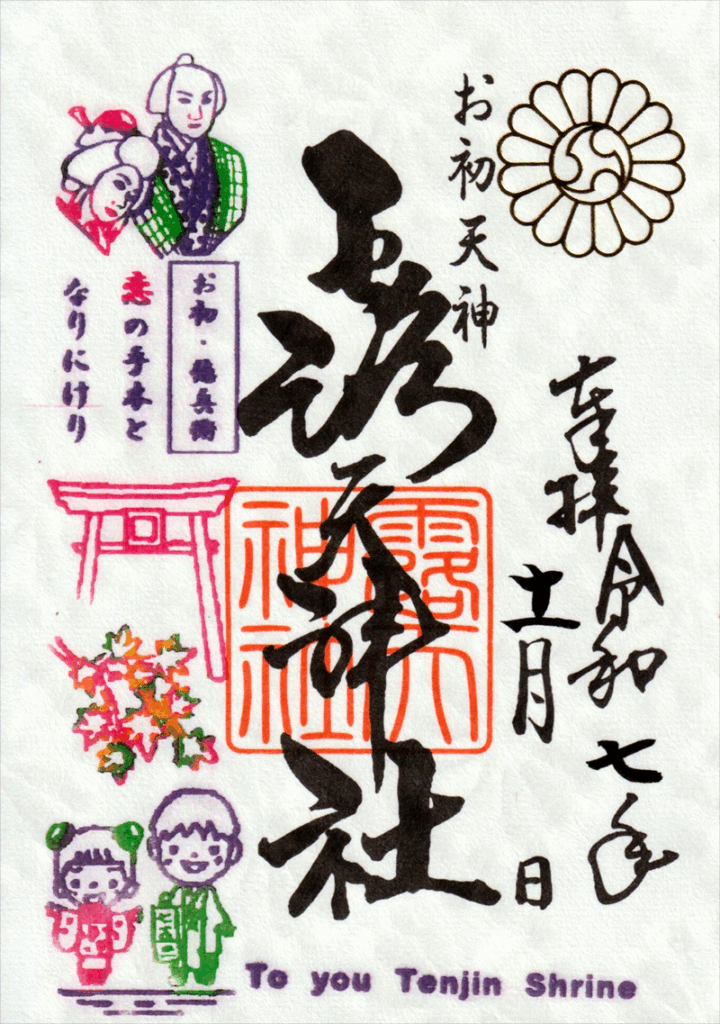 お初天神
奉拝 令和七年
十一月 日
露天神社
露天
神社
お初・徳兵衛
恋の手本と
なりにけり
To you Tenjin Shrine